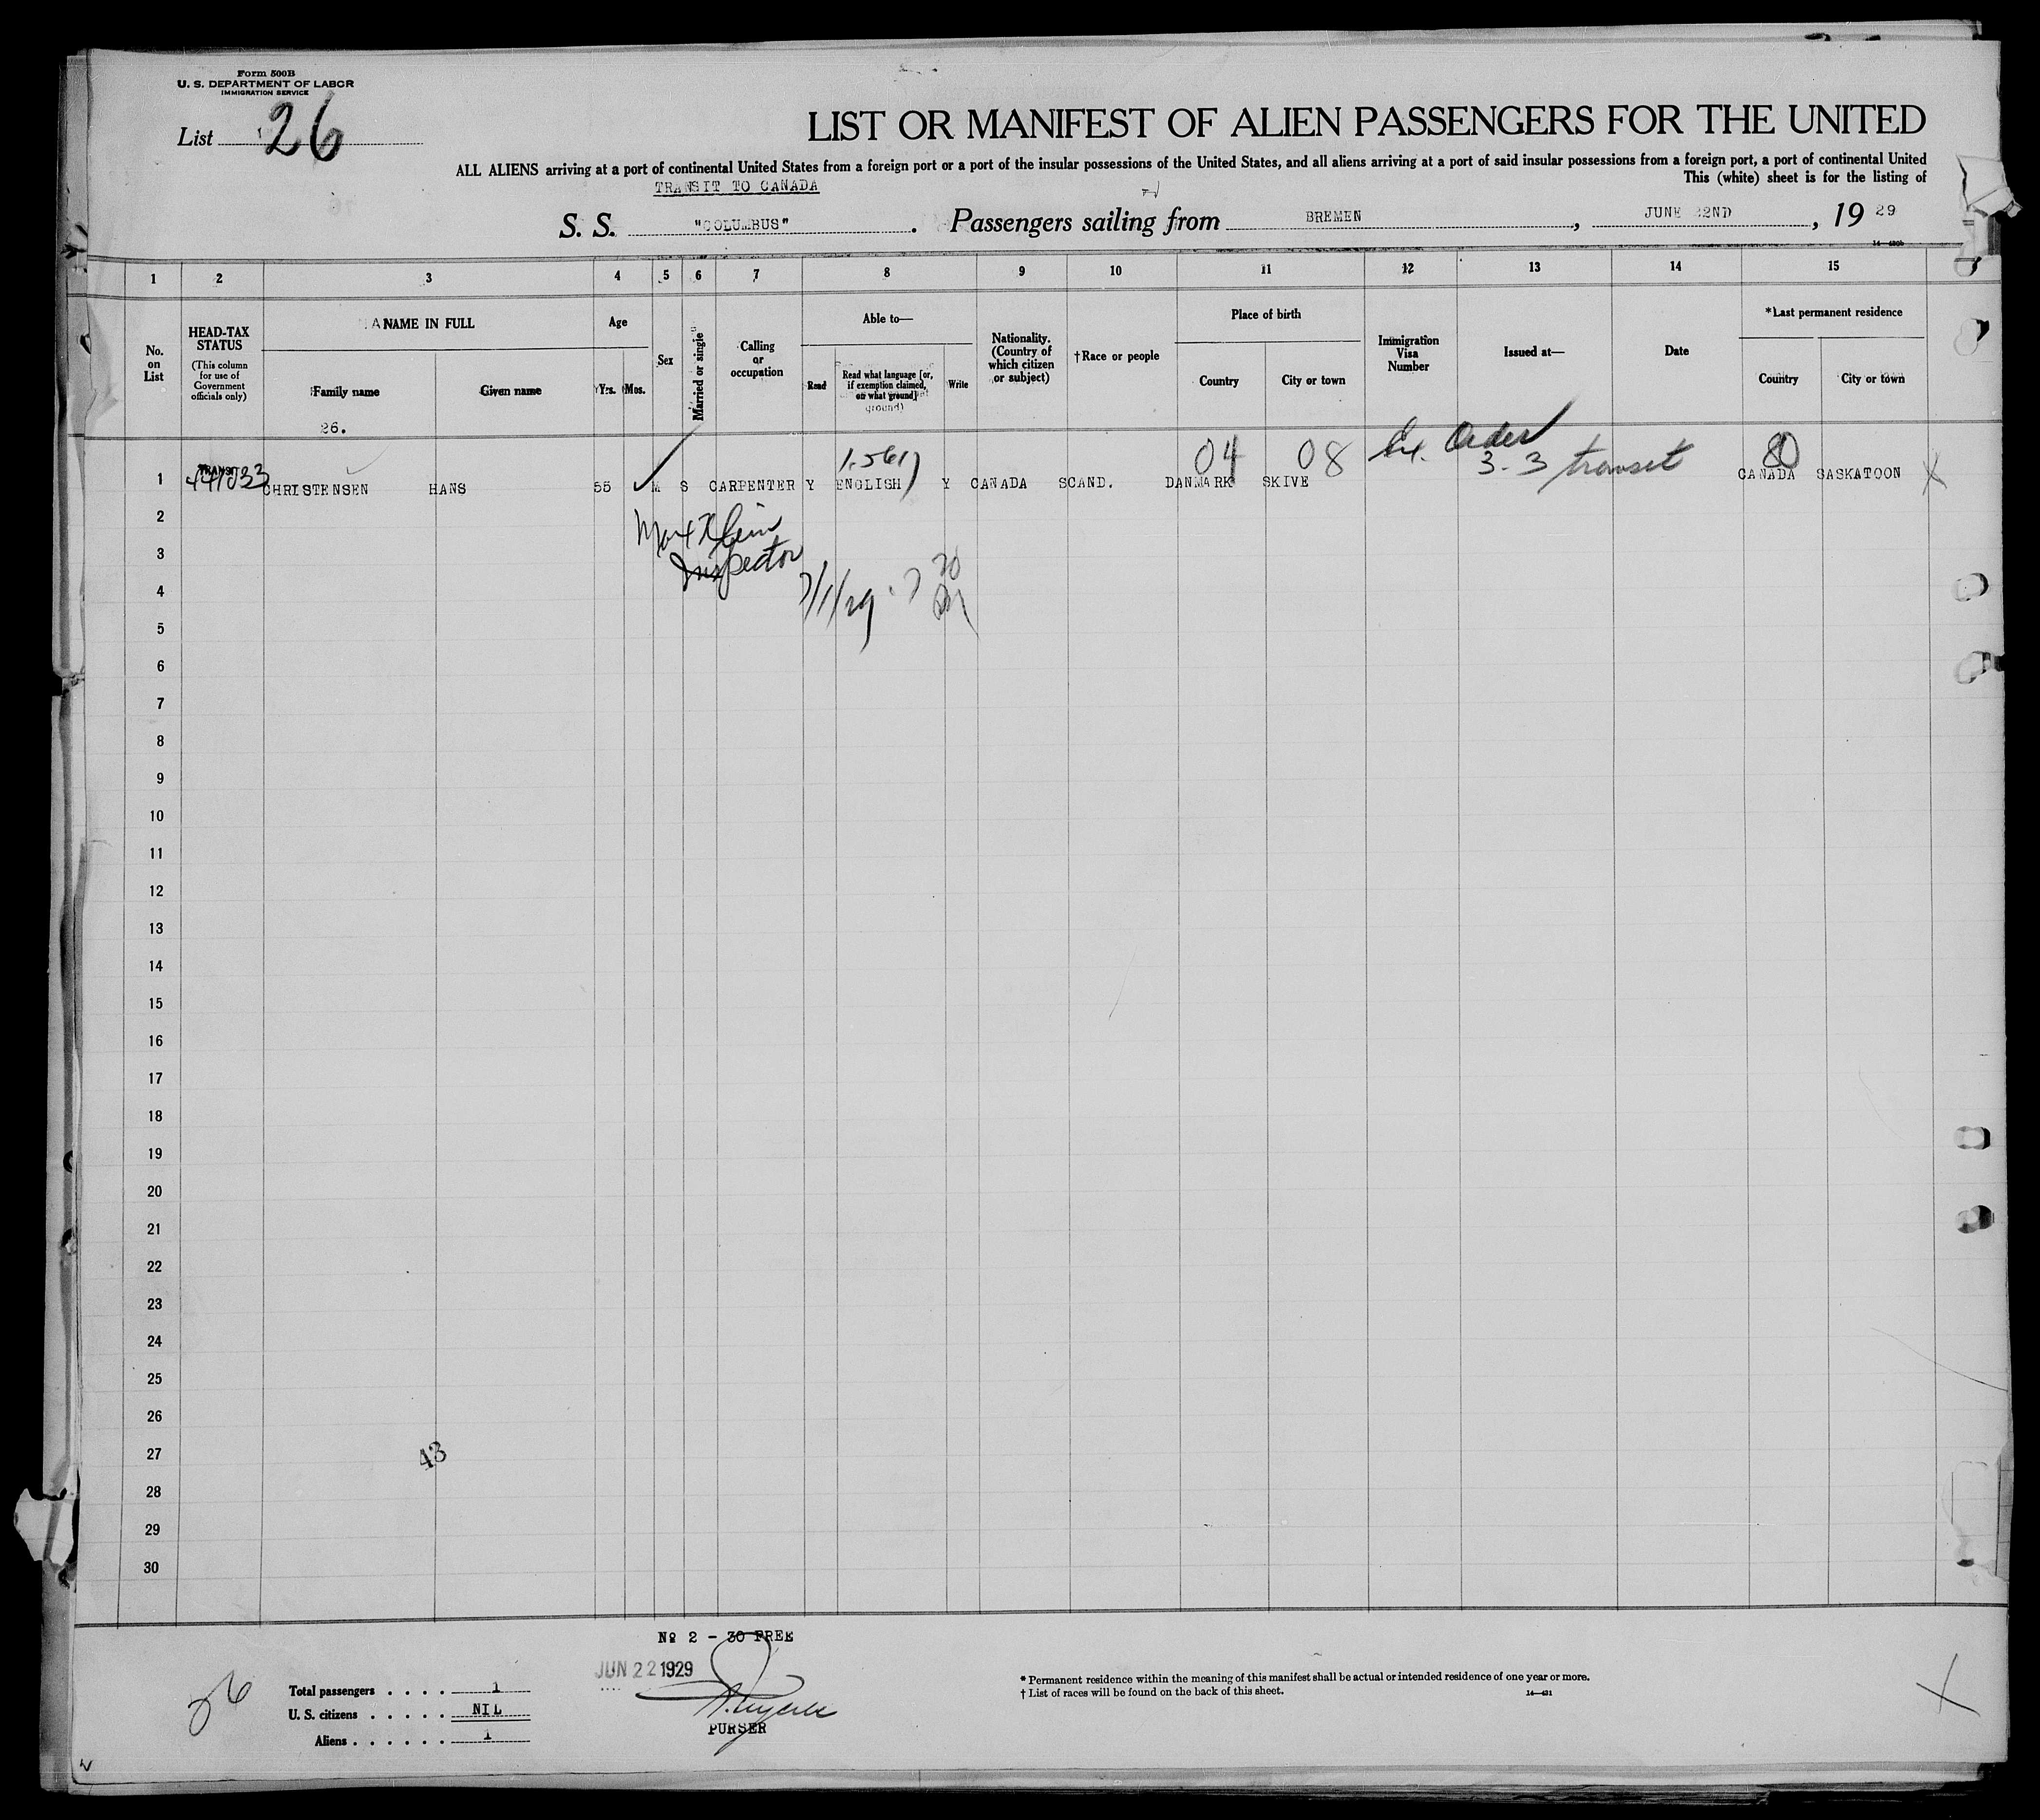 Form 500B
U. S. DEPARTMENT OF LABOR
IMMIGRATION SERVICE
List 26
LIST OR MANIFEST OF ALIEN PASSENGERS FOR THE UNITED
ALL ALIENS arriving at a port of continental United States from a foreign port or a port of the insular possessions of the United States, and all aliens arriving at a port of said insular possessions from a foreign port, a port of continental United
This (white) sheet is for the listing of
TRANSIT TO CANADA
S. S. "COLUMBUS". Passengers sailing from BREMEN, JUNE 22ND, 19 29
1 2 3 4 5 6 7 8 9 10 11 12 13 14 15
No. on List
HEAD-TAX STATUS
(This column for use of Government officials only)
NAME IN FULL
Family name
Given name
Age
Yrs.
Mos.
Sex
Married or single
Calling or occupation
Able to—
Read
Read what language [or, if exemption claimed, on what ground]
ground)
Write
Nationality. (Country of which citizen or subject)
†Race or people
Place of birth
Country
City or town
Immigration Visa Number
Issued at—
Date
*Last permanent residence
Country
City or town
26.
04 08 Order 80
3-3 transit
TRANSIT
1 CHRISTENSEN HANS 55 M S CARPENTER Y ENGLISH Y CANADA SCAND. DANMARK SKIVE CANADA SASKATOON
2
3
Inspector
4
7/1/29
5
6
7
8
9
10
11
12
13
14
15
16
17
18
19
20
21
22
23
24
25
26
27
43
28
29
30
No 2 - 30 FREE
JUN 22 1929
26
Total passengers . . . . 1
U. S. citizens . . . . . NIL
Aliens . . . . . . 1
PURSER
* Permanent residence within the meaning of this manifest shall be actual or intended residence of one year or more.
† List of races will be found on the back of this sheet.